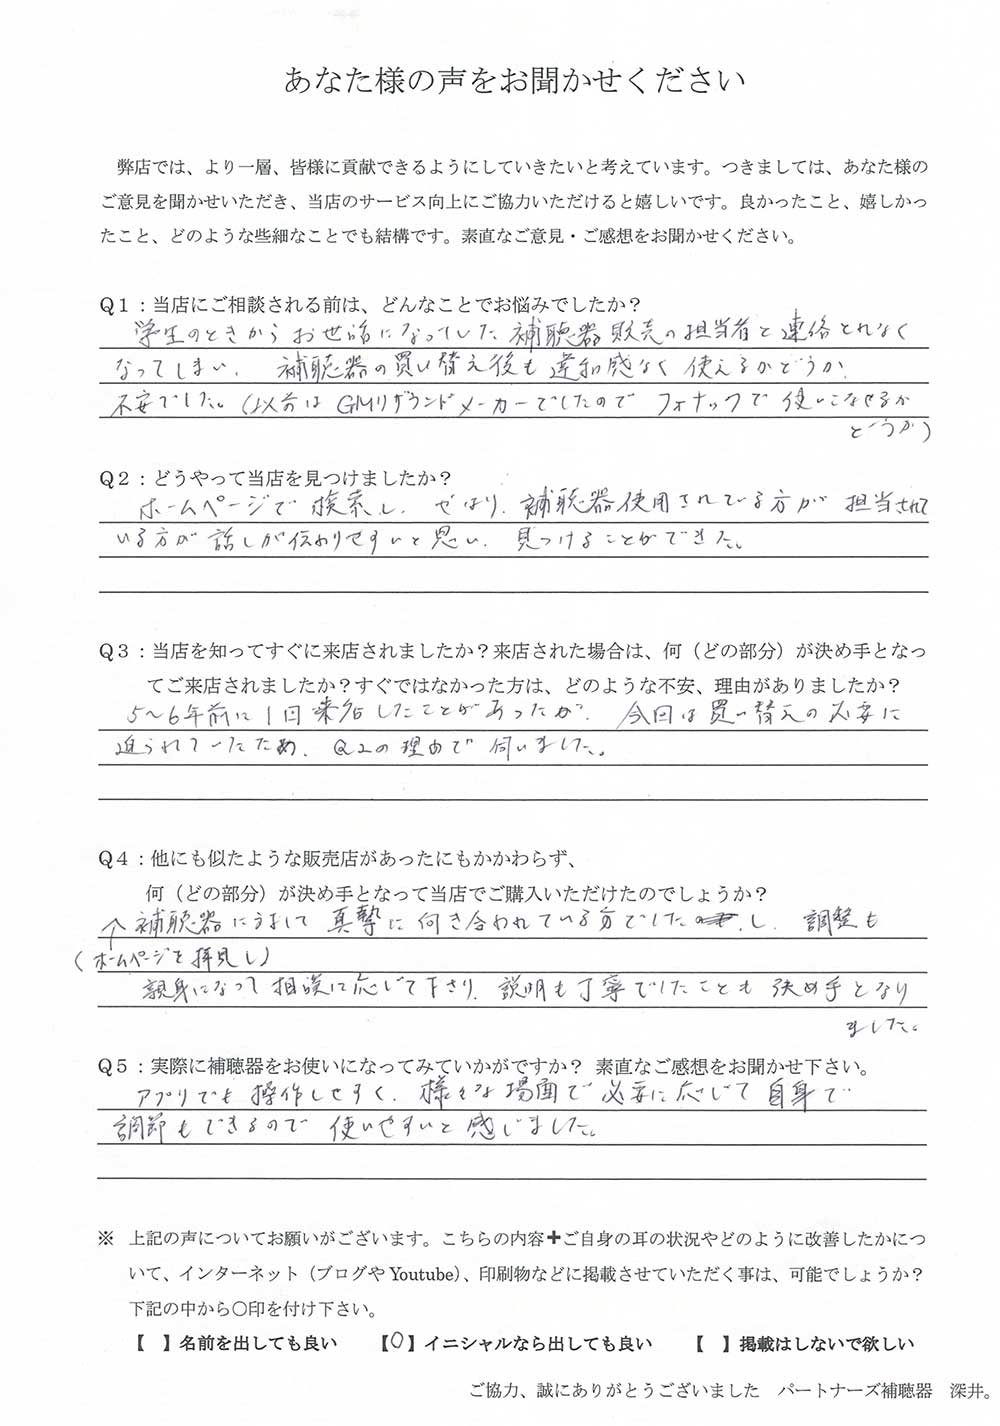 あなた様の声をお聞かせください
弊店では、より一層、皆様に貢献できるようにしていきたいと考えています。つきましては、あなた様の
ご意見を聞かせいただき、当店のサービス向上にご協力いただけると嬉しいです。良かったこと、嬉しかっ
たこと、どのような些細なことでも結構です。素直なご意見・ご感想をお聞かせください。
Q1：当店にご相談される前は、どんなことでお悩みでしたか？
学生のときからお世話になっていた補聴器販売の担当者と連絡とれなく
なってしまい、補聴器の買い替え後も違和感なく使えるかどうか、
不安でした。（以前はGMリサウンドメーカーでしたのでフォナックで使いこなせるか
どうか）
Q2：どうやって当店を見つけましたか？
ホームページで検索し、やはり、補聴器使用されている方が担当されて
いる方が話しが伝わりやすいと思い、見つけることができた。
Q3：当店を知ってすぐに来店されましたか？来店された場合は、何（どの部分）が決め手となっ
てご来店されましたか？すぐではなかった方は、どのような不安、理由がありましたか？
5～6年前に1回来店したことがあったが、今回は買い替えの必要に
迫られていたため、Q2の理由で伺いました。
Q4：他にも似たような販売店があったにもかかわらず、
何（どの部分）が決め手となって当店でご購入いただけたのでしょうか？
↑補聴器に 真摯に向き合われている方でしたし、調整も
（ホームページを拝見し）
親身になって相談に応じて下さり、説明も丁寧でしたことも決め手となり
ました。
Q5：実際に補聴器をお使いになってみていかがですか？ 素直なご感想をお聞かせ下さい。
アプリでも操作しやすく、様々な場面で必要に応じて自身で
調節もできるので使いやすいと感じました。
※ 上記の声についてお願いがございます。こちらの内容+ご自身の耳の状況やどのように改善したかにつ
いて、インターネット（ブログやYoutube）、印刷物などに掲載させていただく事は、可能でしょうか？
下記の中から○印を付け下さい。
【 】名前を出しても良い 【○】イニシャルなら出しても良い 【 】掲載はしないで欲しい
ご協力、誠にありがとうございました パートナーズ補聴器 深井。